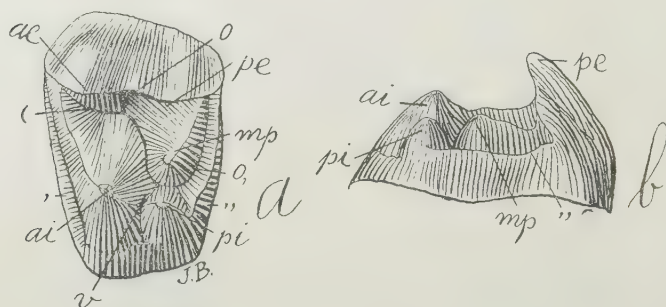 ae
o
pe
(
mp
o,
,
"
a
ai
pi
v
J.B.
ai
pe
pi
mp
"
b